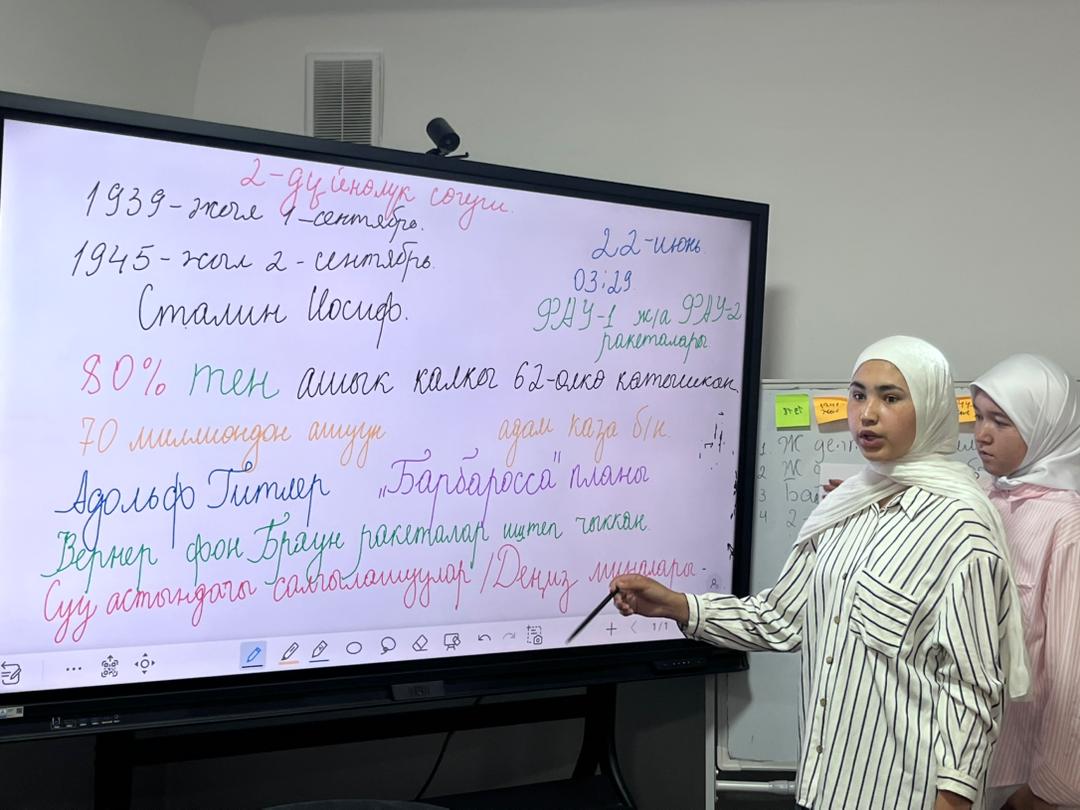 2-дүйнөлүк согуш.
1939-жыл 1-сентябрь.
1945-жыл 2-сентябрь.
22-июнь
03:29
Сталин Иосиф.
ФАУ-1 ж/а ФАУ-2
ракеталары
80% тен ашык калкы 62-өлкө катышкан
70 миллиондон ашуун адам каза б/н.
Адольф Гитлер "Барбаросса" планы
Вернер фон Браун ракеталар иштеп чыккан
Суу астындагы салгылашуулар / Деңиз миналары-
1/1
1. Ж
2 Ж
3 Ба
4 2